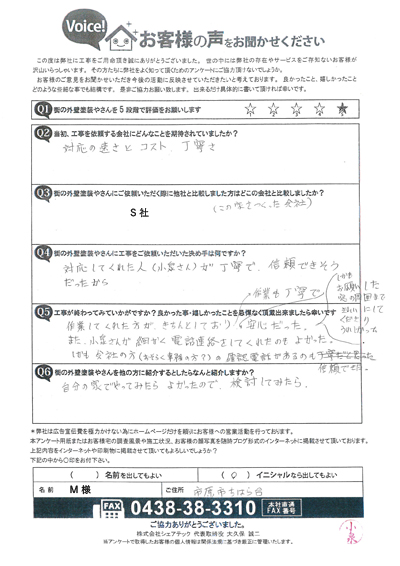 Voice!
お客様の声をお聞かせください
この度は弊社に工事をご用命頂き誠にありがとうございました。世の中には弊社の存在やサービスをご存知ないお客様が
沢山いらっしゃいます。その方たちに弊社をよく知って頂くためのアンケートにご協力頂けないでしょうか。
お客様のご意見をお聞かせいただき今後の活動に反映させていただきたいと考えております。良かったこと、嬉しかったこと
どのような些細な事でも結構です。是非ご協力お願い致します。出来るだけ具体的に書いて頂ければ幸いです。
Q1 街の外壁塗装やさんを5段階で評価をお願いします ☆ ☆ ☆ ☆ ★
Q2 当初、工事を依頼する会社にどんなことを期待されていましたか？
対応の速さと コスト、丁寧さ
Q3 街の外壁塗装やさんにご依頼いただく際に他社と比較しました方はどこの会社と比較しましたか？
S社
(この家をつくった会社)
Q4 街の外壁塗装やさんに工事をご依頼いただいた決め手は何ですか？
対応してくれた人(小宮さん)が丁寧で、信頼できそう
だったから
Q5 工事が終わってみていかがですか？良かった事・嬉しかったことを忌憚なく頂戴出来ましたら幸いです
作業も丁寧で
作業してくれた方が、きちんとしており、安心だった。
また、小宮さんが細かく電話連絡をしてくれたのもよかった。
しかも会社の方(おそらく事務の方？)の確認電話があるのも
信頼できた。
Q6 街の外壁塗装やさんを他の方に紹介するとしたらなんと紹介しますか？
自分の家でやってみたらよかったので、検討してみたら。
＊弊社は広告宣伝費を極力かけない為にホームページだけを頼りにお客様への営業活動を行っております。
本アンケート用紙またはお客様宅の調査風景や施工状況、お客様の顔写真を随時ブログ形式のインターネットに掲載させて頂いております。
上記内容をインターネットや印刷物に掲載させて頂いてもよろしいでしょうか？
下記の中から○印をお付下さい。
（　）名前を出してもよい （○）イニシャルなら出してもよい
名前 M様 ご住所 市原市ちはら台
FAX 0438-38-3310 本社直通 FAX番号
ご協力ありがとうございました。
株式会社シェアテック 代表取締役 大久保 誠二
※アンケートで取得したお客様の個人情報は関係法案に基づき厳正に管理いたします。